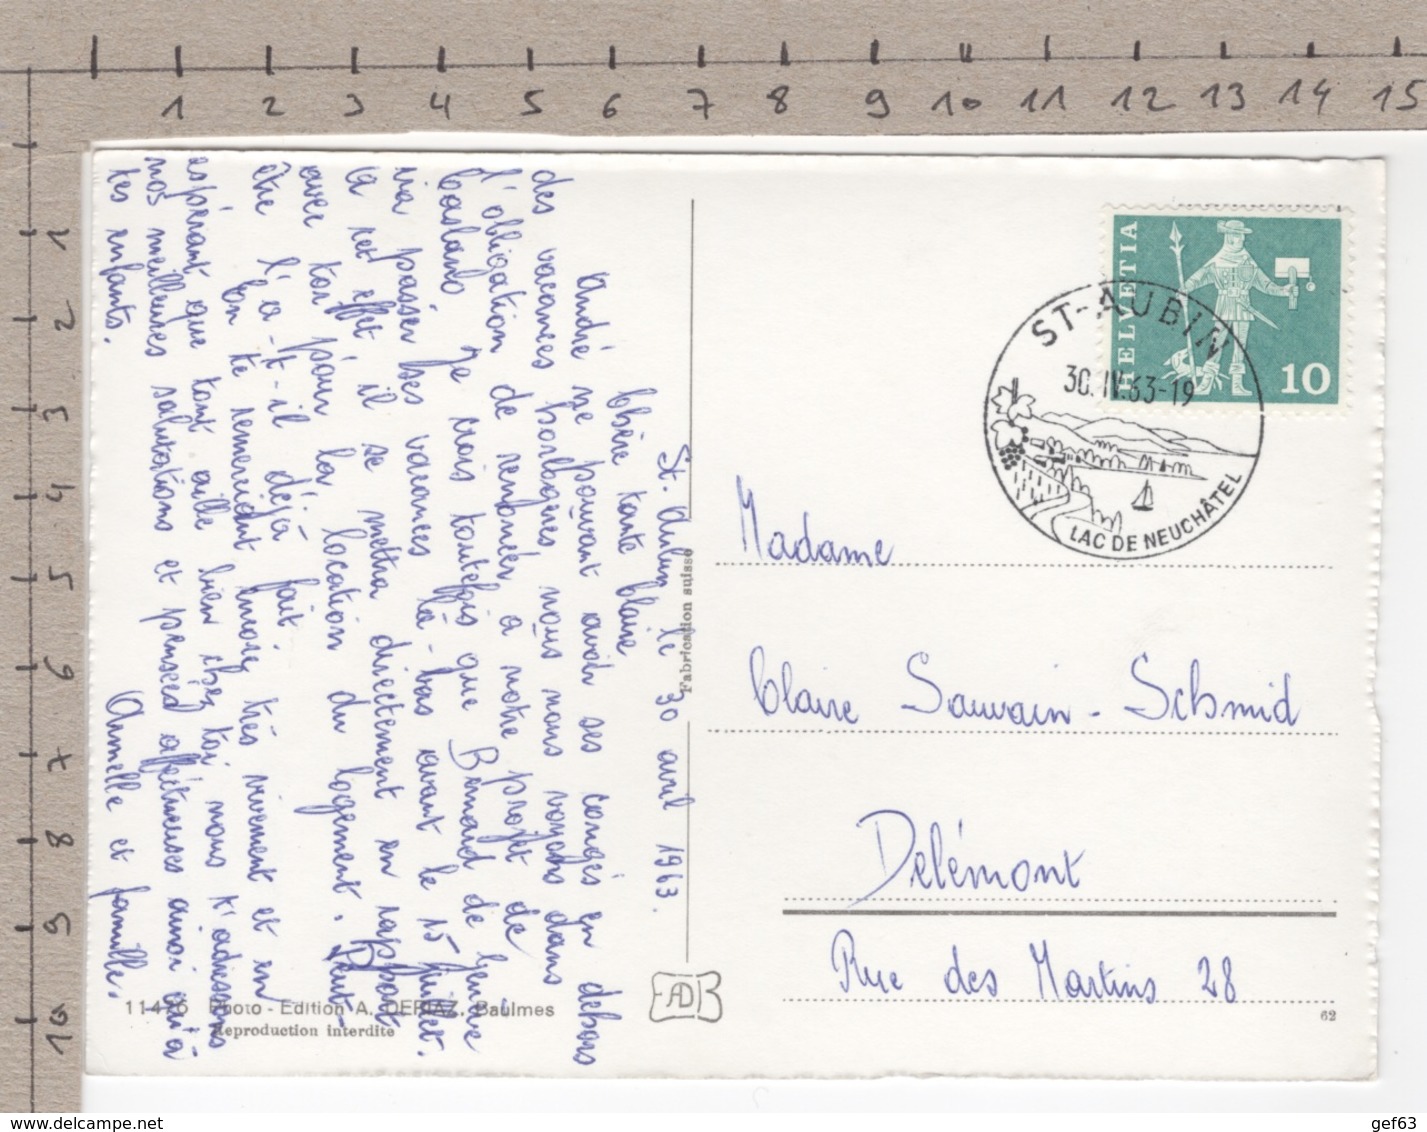 1 2 3 4 5 6 7 8 9 10 11 12 13 14 15
1
2
3
4
5
6
7
8
9
10
St. Aubin le 30 avril 1963.
Chère tante Claire
André ne pouvant avoir ses congés en dehors
des vacances horlogères, nous nous voyons dans
l'obligation de renoncer à notre projet de
Casland. Je crois toutefois que Bernard de Genève
ira passer ses vacances là-bas avant le 15 juillet.
A cet effet il se mettra directement en rapport
avec toi pour la location du logement. Peut-
être l'a-t-il déjà fait.
En te remerciant encore très vivement et en
espérant que tout aille bien chez toi, nous t'adressons
nos meilleures salutations et pensées affectueuses ainsi qu'à
tes enfants.
Armelle et famille.
11476 Photo - Edition A. DERIAZ, Baulmes
Reproduction interdite
Fabrication suisse
AD
HELVETIA
10
ST-AUBIN
30.IV.63-19
LAC DE NEUCHÂTEL
Madame
Claire Sauvain-Schmid
Delémont
Rue des Martins 28
62
www.delcampe.net
gef63